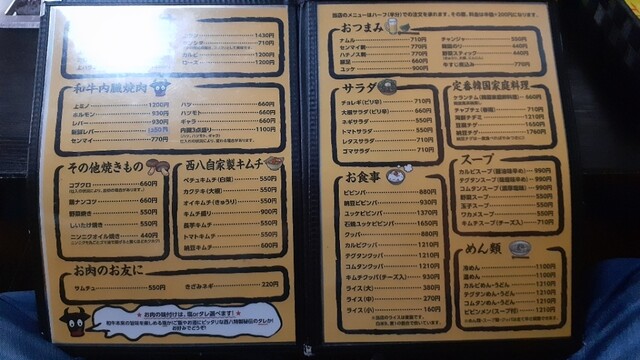 1430円
710円
カルビ 1200円
ロース 1200円
和牛内臓焼肉
上ミノ 1200円
ホルモン 930円
レバー 930円
センマイ 770円
ハツ 660円
ハツモト 660円
ギャラ 660円
内臓3点盛り 1100円
その他焼きもの
コブクロ 660円
豚ナンコツ 660円
野菜焼き 550円
しいたけ焼き 550円
ニンニクオイル焼き 440円
西八自家製キムチ
ペチュキムチ(白菜) 550円
カクテキ(大根) 550円
オイキムチ(きゅうり) 550円
キムチ盛り 900円
長芋キムチ 550円
トマトキムチ 550円
納豆キムチ 600円
お肉のお友に
サムチュ 550円
きざみネギ 220円
お肉の味付けは、塩orダレ選べます!
当店のメニューはハーフ(半分)での注文を承れます。その際、料金は半値+250円になります。
おつまみ
ナムル 710円
センマイ刺 770円
ハチノス刺 770円
豚足 660円
ユッケ 900円
チャンジャ 550円
韓国のり 440円
野菜スティック 440円
牛すじ煮込み 770円
サラダ
チョレギ(ピリ辛) 710円
大根サラダ(ピリ辛) 660円
ネギサラダ 550円
トマトサラダ 550円
レタスサラダ 710円
ゴマサラダ 710円
定番韓国家庭料理
660円
チャプチェ(春雨) 710円
海鮮チヂミ 1210円
海鮮チゲ 1650円
納豆チゲ 1760円
お食事
ビビンバ 880円
納豆ビビンバ 910円
ユッケビビンバ 1370円
石焼ユッケビビンバ 1650円
クッパ 880円
カルビクッパ 1210円
テグタンクッパ 1210円
コムタンクッパ 1210円
キムチクッパ(チーズ入) 930円
ライス(大) 380円
ライス(中) 270円
ライス(小) 160円
スープ
カルビスープ 990円
テグタンスープ 990円
コムタンスープ 990円
野菜スープ 550円
玉子スープ 550円
ワカメスープ 550円
キムチスープ(チーズ入) 710円
めん類
冷めん 1100円
温めん 1100円
カルビめん・うどん 1210円
テグタンめん・うどん 1210円
コムタンめん・うどん 1210円
ビビンメン(スープ付) 1210円